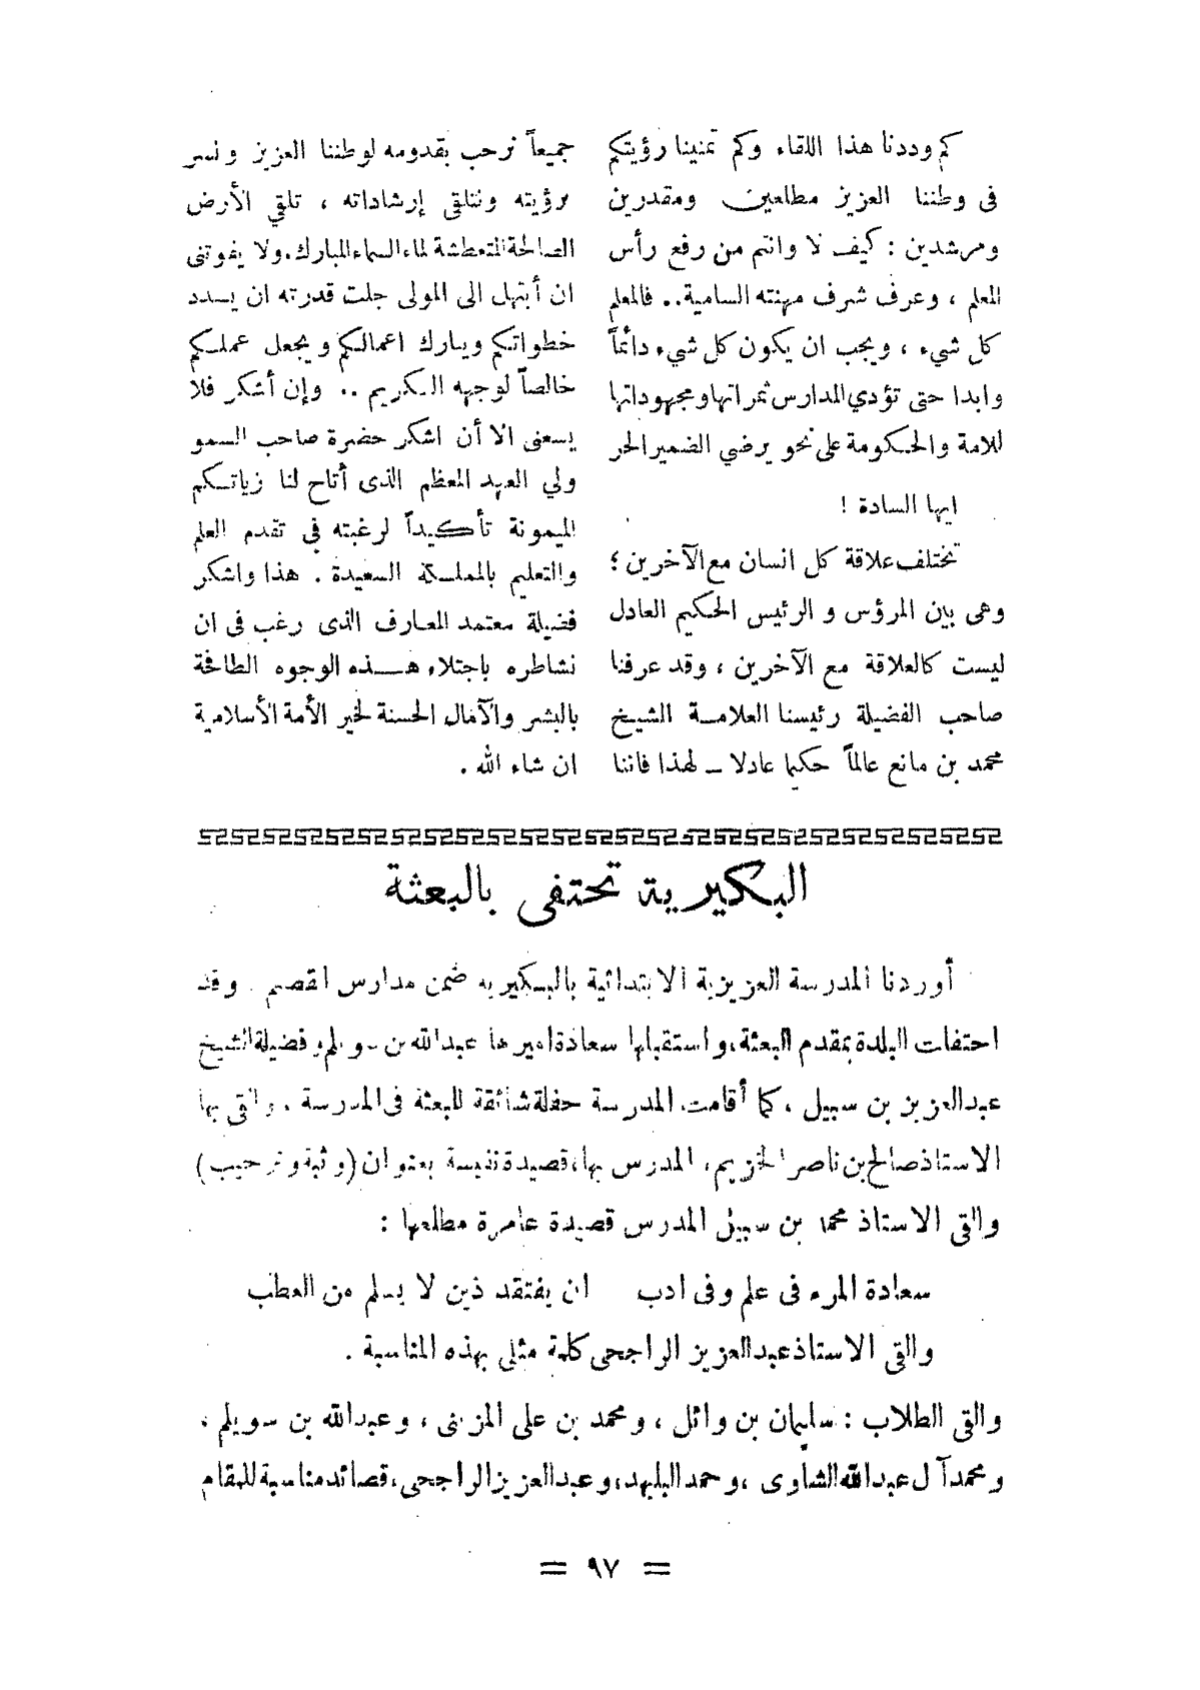 كم وددنا هذا اللقاء وكم تمنينا رؤيتكم
فى وطننا العزيز مطلعين ومقدرين
ومرشدين : كيف لا وانتم من رفع رأس
المعلم ، وعرف شرف مهنته السامية.. فالمعلم
كل شيء ، ويجب ان يكون كل شيء دائماً
وابدا حتى تؤدي المدارس ثمراتها ومجهوداتها
للامة والحكومة على نحو يرضي الضمير الحر
ايها السادة !
تختلف علاقة كل انسان مع الآخرين ؛
وهى بين المرؤس و الرئيس الحكيم العادل
ليست كالعلاقة مع الآخرين ، وقد عرفنا
صاحب الفضيلة رئيسنا العلامة الشيخ
محمد بن مانع عالماً حكيما عادلا ــ لهذا فاننا
جميعاً نرحب بقدومه لوطننا العزيز ونسر
برؤيته ونتلقى إرشاداته ، تلقي الأرض
الصالحة المتعطشة لماء السماء المبارك. ولا يفوتنى
ان أبتهل الى المولى جلت قدرته ان يسدد
خطواتكم ويبارك اعمالكم ويجعل عملكم
خالصاً لوجهه الكريم .. وإن أشكر فلا
يسعنى الا أن اشكر حضرة صاحب السمو
ولي العهد المعظم الذى أتاح لنا زياتكم
الميمونة تأكيداً لرغبته فى تقدم العلم
والتعليم بالمملكة السعيدة . هذا واشكر
فضيلة معتمد المعارف الذى رغب فى ان
نشاطره باجتلاء هذه الوجوه الطافحة
بالبشر والآمال الحسنة لخير الأمة الأسلامية
ان شاء الله .
البكيرية تحتفى بالبعثة
أوردنا المدرسة العزيزية الابتدائية بالبكيرية ضمن مدارس القصيم . وقد
احتفلت البلدة بمقدم البعثة، واستقبلها سعادة اميرها عبدالله بن سويلم، وفضيلة الشيخ
عبدالعزيز بن سبيل ، كما أقامت المدرسة حفلة شائقة للبعثة فى المدرسة . والقى بها
الاستاذ صالح بن ناصر الخزيم، المدرس بها، قصيدة نفيسة بعنوان (وثبة وترحيب)
والقى الاستاذ محمد بن سبيل المدرس قصيدة عامرة مطلعها :
سعادة المرء فى علم وفى ادب ان يفتقد ذين لا يسلم من العطب
والقى الاستاذ عبدالعزيز الراجحى كلمة مثلى بهذه المناسبة .
والقى الطلاب : سليمان بن وائل ، ومحمد بن على المزينى ، وعبدالله بن سويلم ،
ومحمد آل عبدالله الشاوى ، وحمد البليهد، وعبدالعزيز الراجحى، قصائد مناسبة للمقام
= ٩٧ =